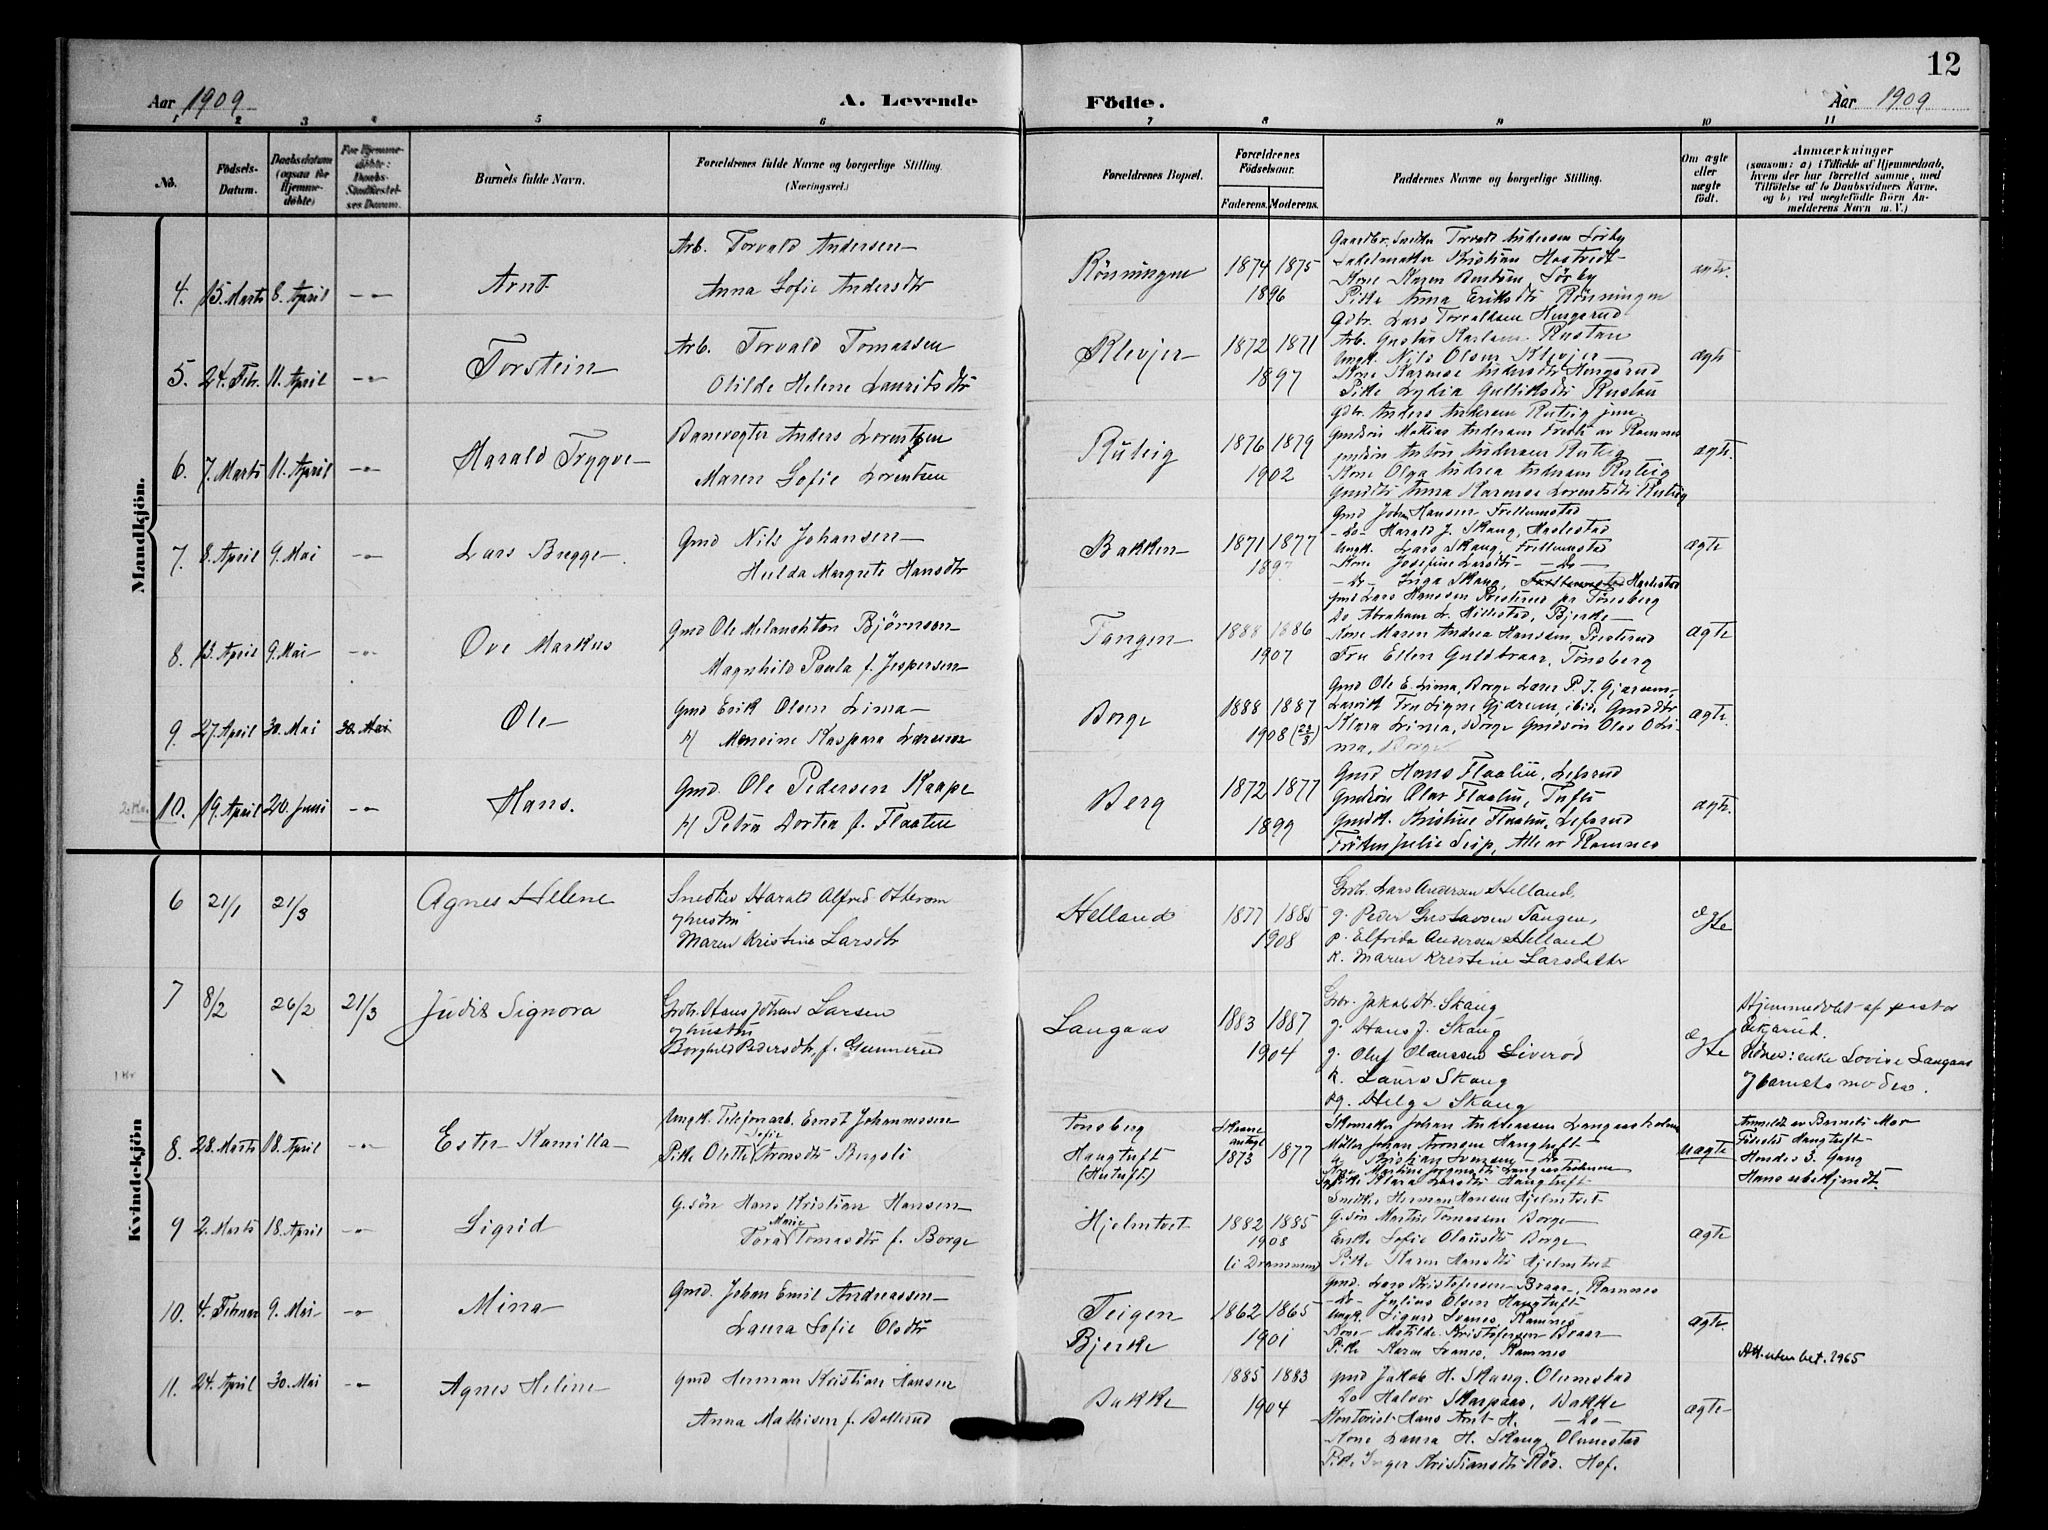 12
Aar 1909
A. Levende
Födte.
Aar 1909
1 2 3 4 5 6 7 8 9 10 11
No.
Födsels-Datum.
Daabsdatum (ogsaa for Hjemme-döbte)
For Hjemme-döbte: Daabs-Stadfæstel-ses Datum.
Barnets fulde Navn.
Forældrenes fulde Navne og borgerlige Stilling. (Næringsvei.)
Forældrenes Bopæl.
Forældrenes Födselsaar.
Faderens. Moderens.
Faddernes Navne og borgerlige Stilling.
Om ægte eller uægte födt.
Anmærkninger
(saasom: a) i Tilfælde af Hjemmedaab,
hvem der har forrettet samme, med
Tilföielse af to Daabsvidners Navne.
og b) ved uegtefödte Börn An-
melderens Navn m. V.)
Mandkjön.
4. 15. Marts 8. April -"- Arnt
Arb. Torvald Andersen
Anna Sofie Andersdtr
Rönningen
1874 1875
1896
Gaardbr. Snedker Torvald Andersen Sörby
Kristian Hostvedt
Kone Karen Sörby
Pike Anna Eriksdtr Rönningen
5. 24. Febr. 11. April -"- Torstein
Arb. Torvald Tomassen
Otilde Helene Lauritsdtr
Klevjer
1872 1871
1897
Gdbr. Lars Torvaldsen
Arb. Gustav Karlsen Rustan
Ungk. Nils Olsen Klevjer
Kone Karense Andersdtr
Pike Lydia Gulliksdtr Rustan
ægte
6. 7. Marts 11. April -"- Harald Trygve
Banevogter Anders Lorentzen
Maren Sofie Lorentsen
Rulvig
1876 1879
1902
Gdbr. Anders Andersen jun.
Gmdsön Matias Andersen av Ramnes
Gmdsön Anton Andersen
Kone Olga Andrea Andersen
Gmddtr Anna Karense Lorentsdtr
ægte.
7. 8. April 9. Mai -"- Lars Brygge
Gmd Nils Johansen
Hulda Margrete Hansdtr
Bakken
1871 1877
1897
Gmd Johan Hansen
-Do- Harald J. Skaug,
Ungk. Lars Skaug,
Kone Josefine Larsdtr -Do-
-Do- Inga Skaug,
ægte
8. 13. April 9. Mai -"- Ove Markus
Gmd Ole Melanchton Björnsen
Magnhild Paula f. Jespersen
Tangen
1888 1886
1907
Gmd Lars Hanssen Presterud pr Tönsberg
Do Abraham L. Hillestad, Bjerke
Kone Maren Andrea Hanssen, Presterud
Fru Ellen Guldbraar, Tönsberg
ægte
9. 27. April 30. Mai 30. Mai Ole
Gmd Erik Olsen Lima
H Monsine Kaspara Larsen
Borge
1888 1887
1908
Gmd Ole E. Lima, Borge Lærer P. J. Gjærum,
Larvik Fru Signe Gjærum, ibid. Gmddtr
Klara Lima, Borge Gmdsön Olas O Li-
ma, Borge
ægte.
2 Kr. 10. 19. April 20. Juni -"- Hans.
Gmd. Ole Pedersen Kaape
H Petra Dortea f. Flaaten
Berg
1872 1877
1899
Gmd Hans Flaatin, Lefsrud
Gmdsön Olaf Flaatin, Tufts
Kristine Flaatin, Lefsrud
Fröken Julie Seip, Alle av Ramnes
ægte.
Kvindekjön
6 21/1 21/3 Agnes Helene
Snedker Harald Alfred Otterom
og hustru
Maren Kristine Larsdtr
Helland
1877 1885
1908
Grdbr. Lars Andersen Helland,
g. Peder Gustavsen Tangen,
p. Elfrida Andersen Helland
k. Maren Kristine Larsdatter
egte
7 8/2 26/2 21/3 Judit Signora
Grdbr. Hans Johan Larsen
og hustru
Borghild Pedersdtr. f. Gunnerud
Langaas
1883 1887
1904
Grbr. Jakob H. Skaug
g. Hans J. Skaug
g. Oluf Olaussen Liverød
k. Laura Skaug
pg. Helga Skaug
egte
Hjemmedøbt af pastor
Vidner: enke Lovise Langaas
og barnets moder.
1 Kr
8. 28. Marts 18. April -"- Ester Kamilla
Ungk. Telefonarb. Ernst Johannessen
Sofie
Pike Olette Aronsdtr Bergsli
Tönsberg
Haugtuft
(Hustuft)
1873 1877
Skomaker Johan Andreassen Langaasholmen
Möller Johan Aronsen Haugtuft
Kristian Svensen -Do-
Kone Martine Langaasholmen
Pike Klara Larsdtr Haugtuft
uægte
Anmeldt av Barnets Mor
Födested Haugtuft
Hendes 3. Gang
Hans ubekjendt.
9 2. Marts 18. April -"- Sigrid
G.sön Hans Kristian Hansen
Marie
Tora Tomasdtr f. Borge
Hjelmtvet
1882 1885
1908
(i Drammen)
Snedker Herman Hansen Hjelmtvet
G.sön Martin Tomassen Borge
Enke Sofie Olausdtr Borge
Pike Karen Hansdtr Hjelmtvet
ægte
10. 4. Februar 9. Mai -"- Mina
Gmd. Johan Emil Andreassen
Laura Sofie Olsdtr
Teigen
Bjerke
1862 1865
1901
Gmd. Lars Kristofersen Braar, Ramnes
-Do- Julius Olsen Haugtuft
Ungk. Sigurd Ivanes, Ramnes
Kone Matilde Kristofersen Braar
Pike Karen Ivanes, Ramnes
ægte.
Att. utenbet. 1965
11. 24. April 30. Mai -"- Agnes Helene
Gmd Herman Kristian Hansen
Anna Mathisen f. Bollerud
Bakke
1885 1883
1904
Gmd Jakob H. Skaug, Olumstad
Do Halvor Skarpaas, Bakke
Kontorist Hans Arnt H. -Do-
Kone Laura H. Skaug Olumstad
Pike Inger Kristiansdtr Röd. Hof.
ægte